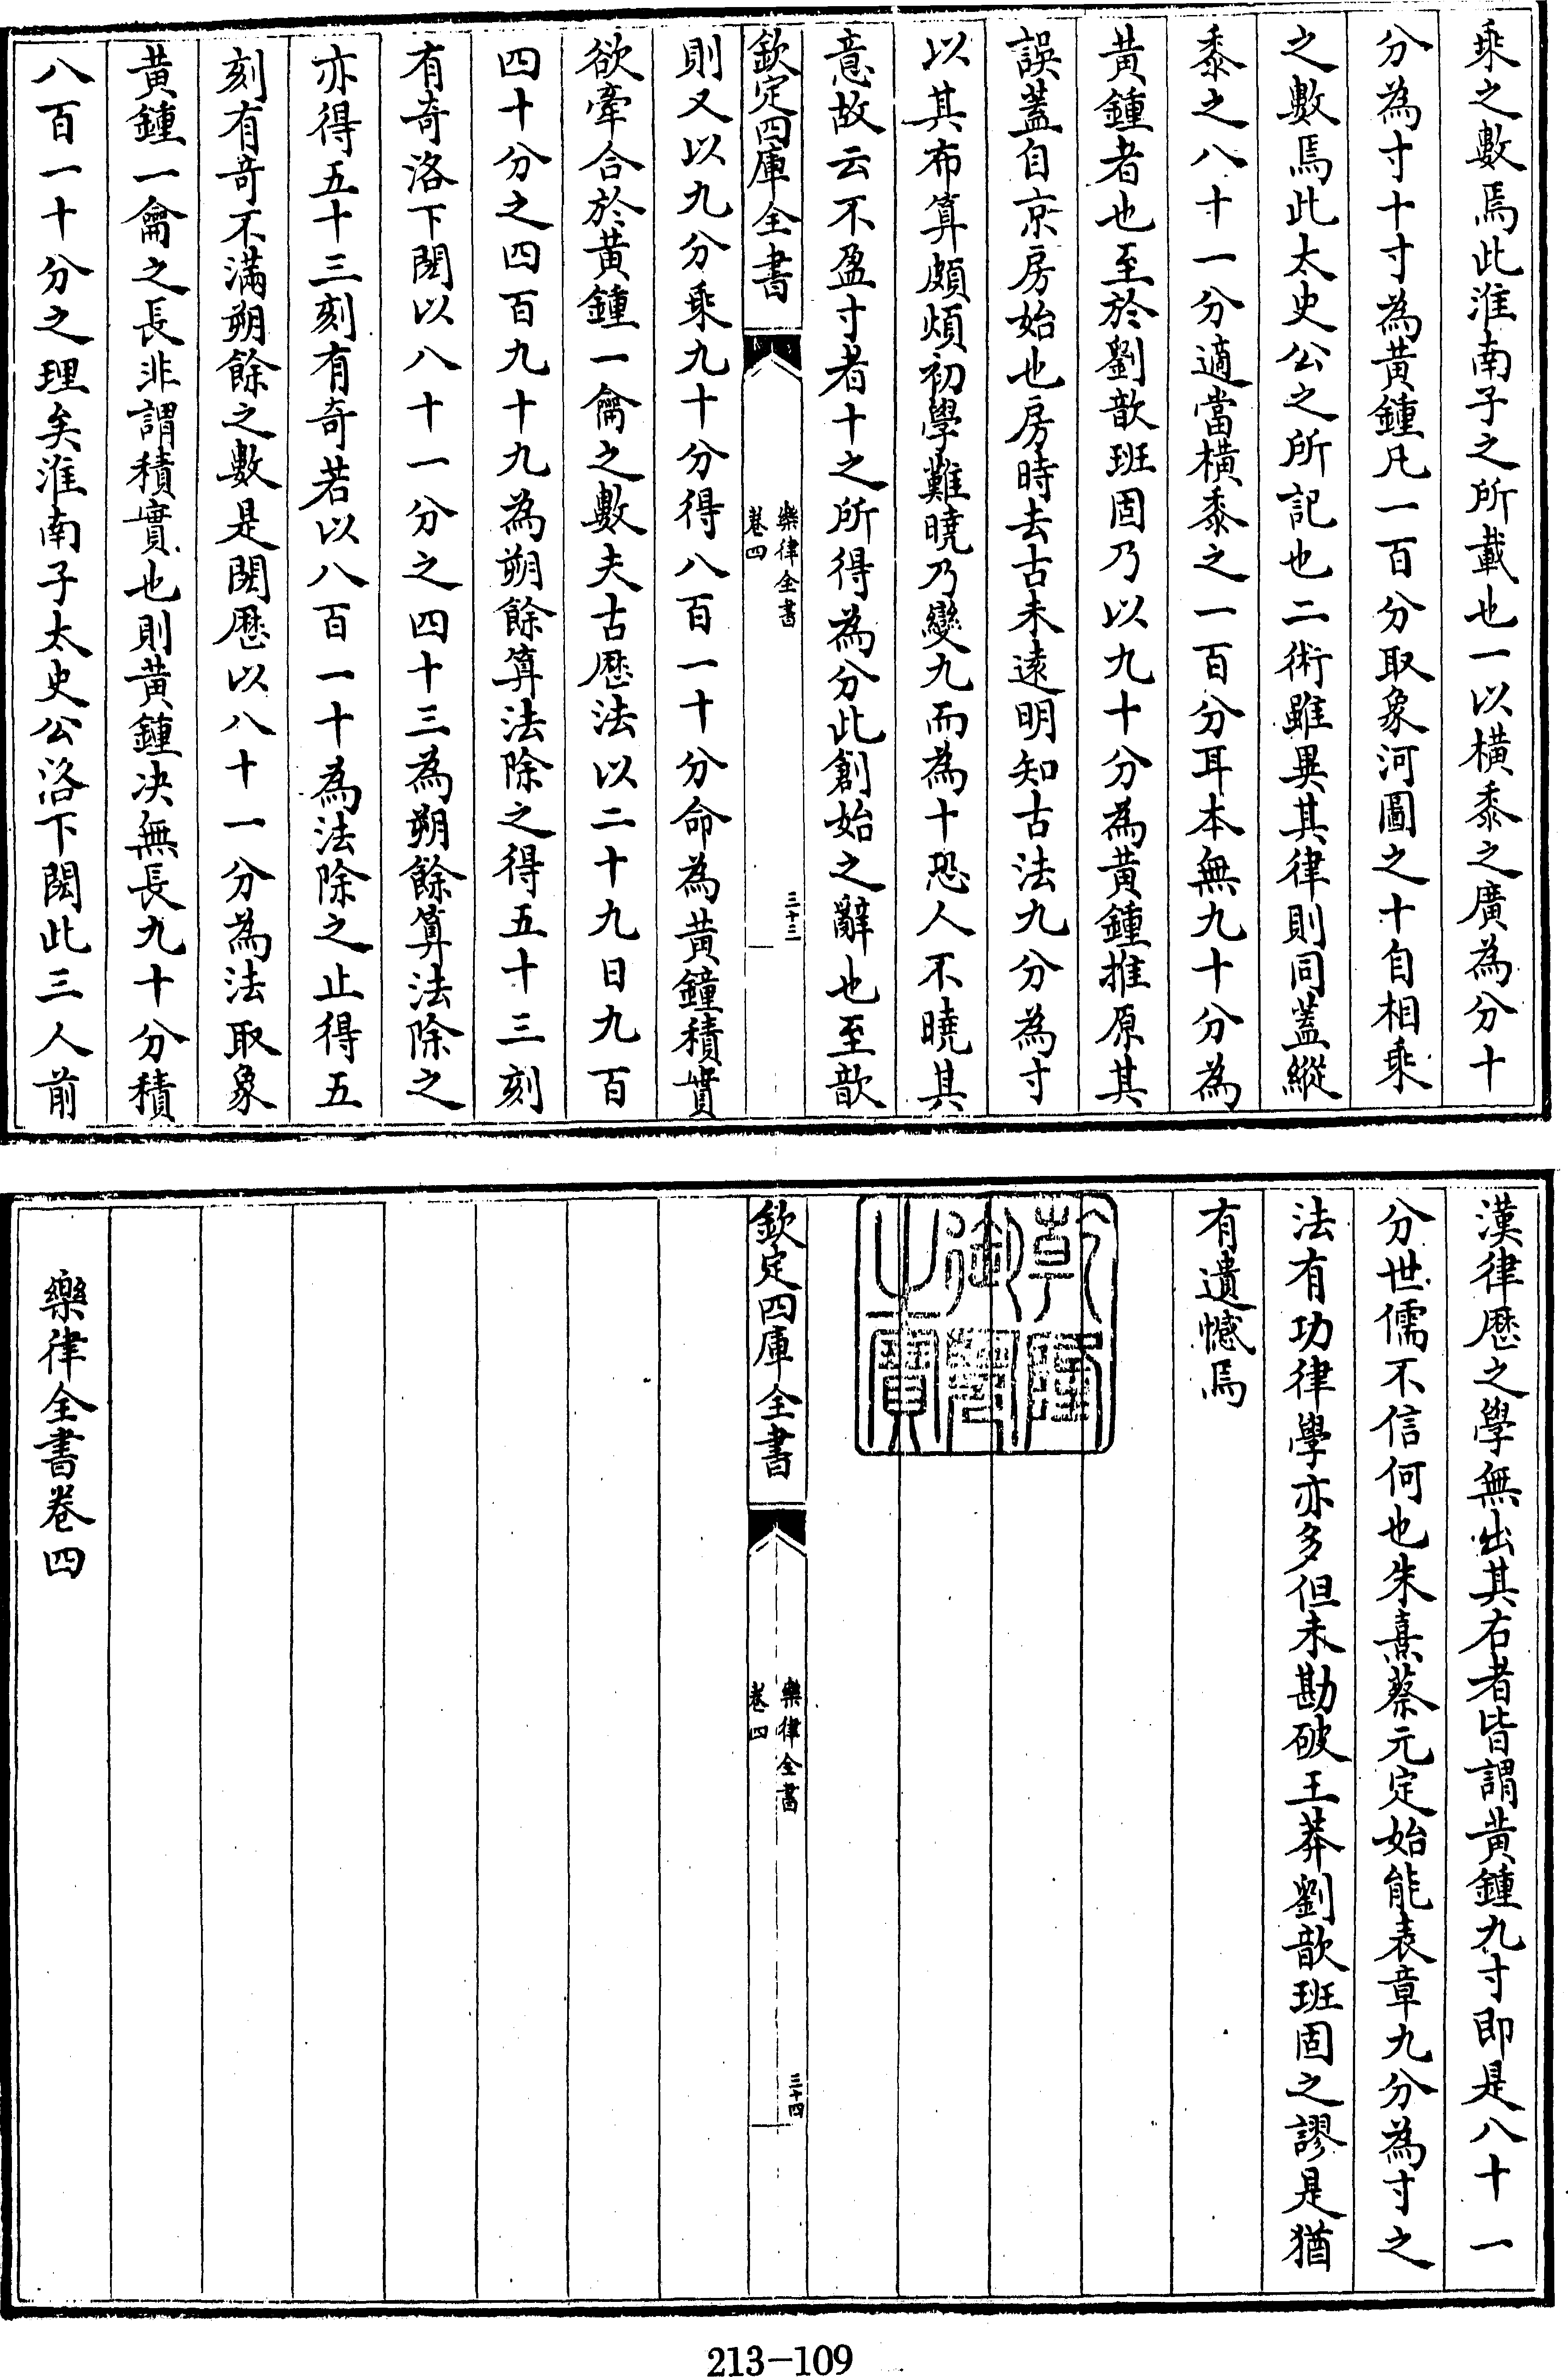 乘之數焉此淮南子之所載也一以橫黍之廣為分十
分為寸十寸為黃鍾凡一百分取象河圖之十自相乘
之數焉此太史公之所記也二術雖異其律則同蓋縱
黍之八十一分適當橫黍之一百分耳本無九十分為
黃鍾者也至於劉歆班固乃以九十分為黃鍾推原其
誤蓋自京房始也房時去古未遠明知古法九分為寸
以其布算頗煩初學難曉乃變九而為十恐人不曉其
意故云不盈寸者十之所得為分此創始之辭也至歆
欽定四庫全書
樂律全書
卷四
三十三
則又以九分乘九十分得八百一十分命為黃鐘積實
欲牽合於黃鍾一龠之數夫古厯法以二十九日九百
四十分之四百九十九為朔餘算法除之得五十三刻
有奇洛下閎以八十一分之四十三為朔餘算法除之
亦得五十三刻有奇若以八百一十為法除之止得五
刻有奇不滿朔餘之數是閎厯以八十一分為法取象
黃鍾一龠之長非謂積實也則黃鍾决無長九十分積
八百一十分之理矣淮南子太史公洛下閎此三人前
漢律厯之學無出其右者皆謂黃鍾九寸即是八十一
分世儒不信何也朱熹蔡元定始能表章九分為寸之
法有功律學亦多但未勘破王莽劉歆班固之謬是猶
有遺憾焉
乾隆御覽之寶
欽定四庫全書
樂律全書
卷四
三十四
樂律全書卷四
213-109